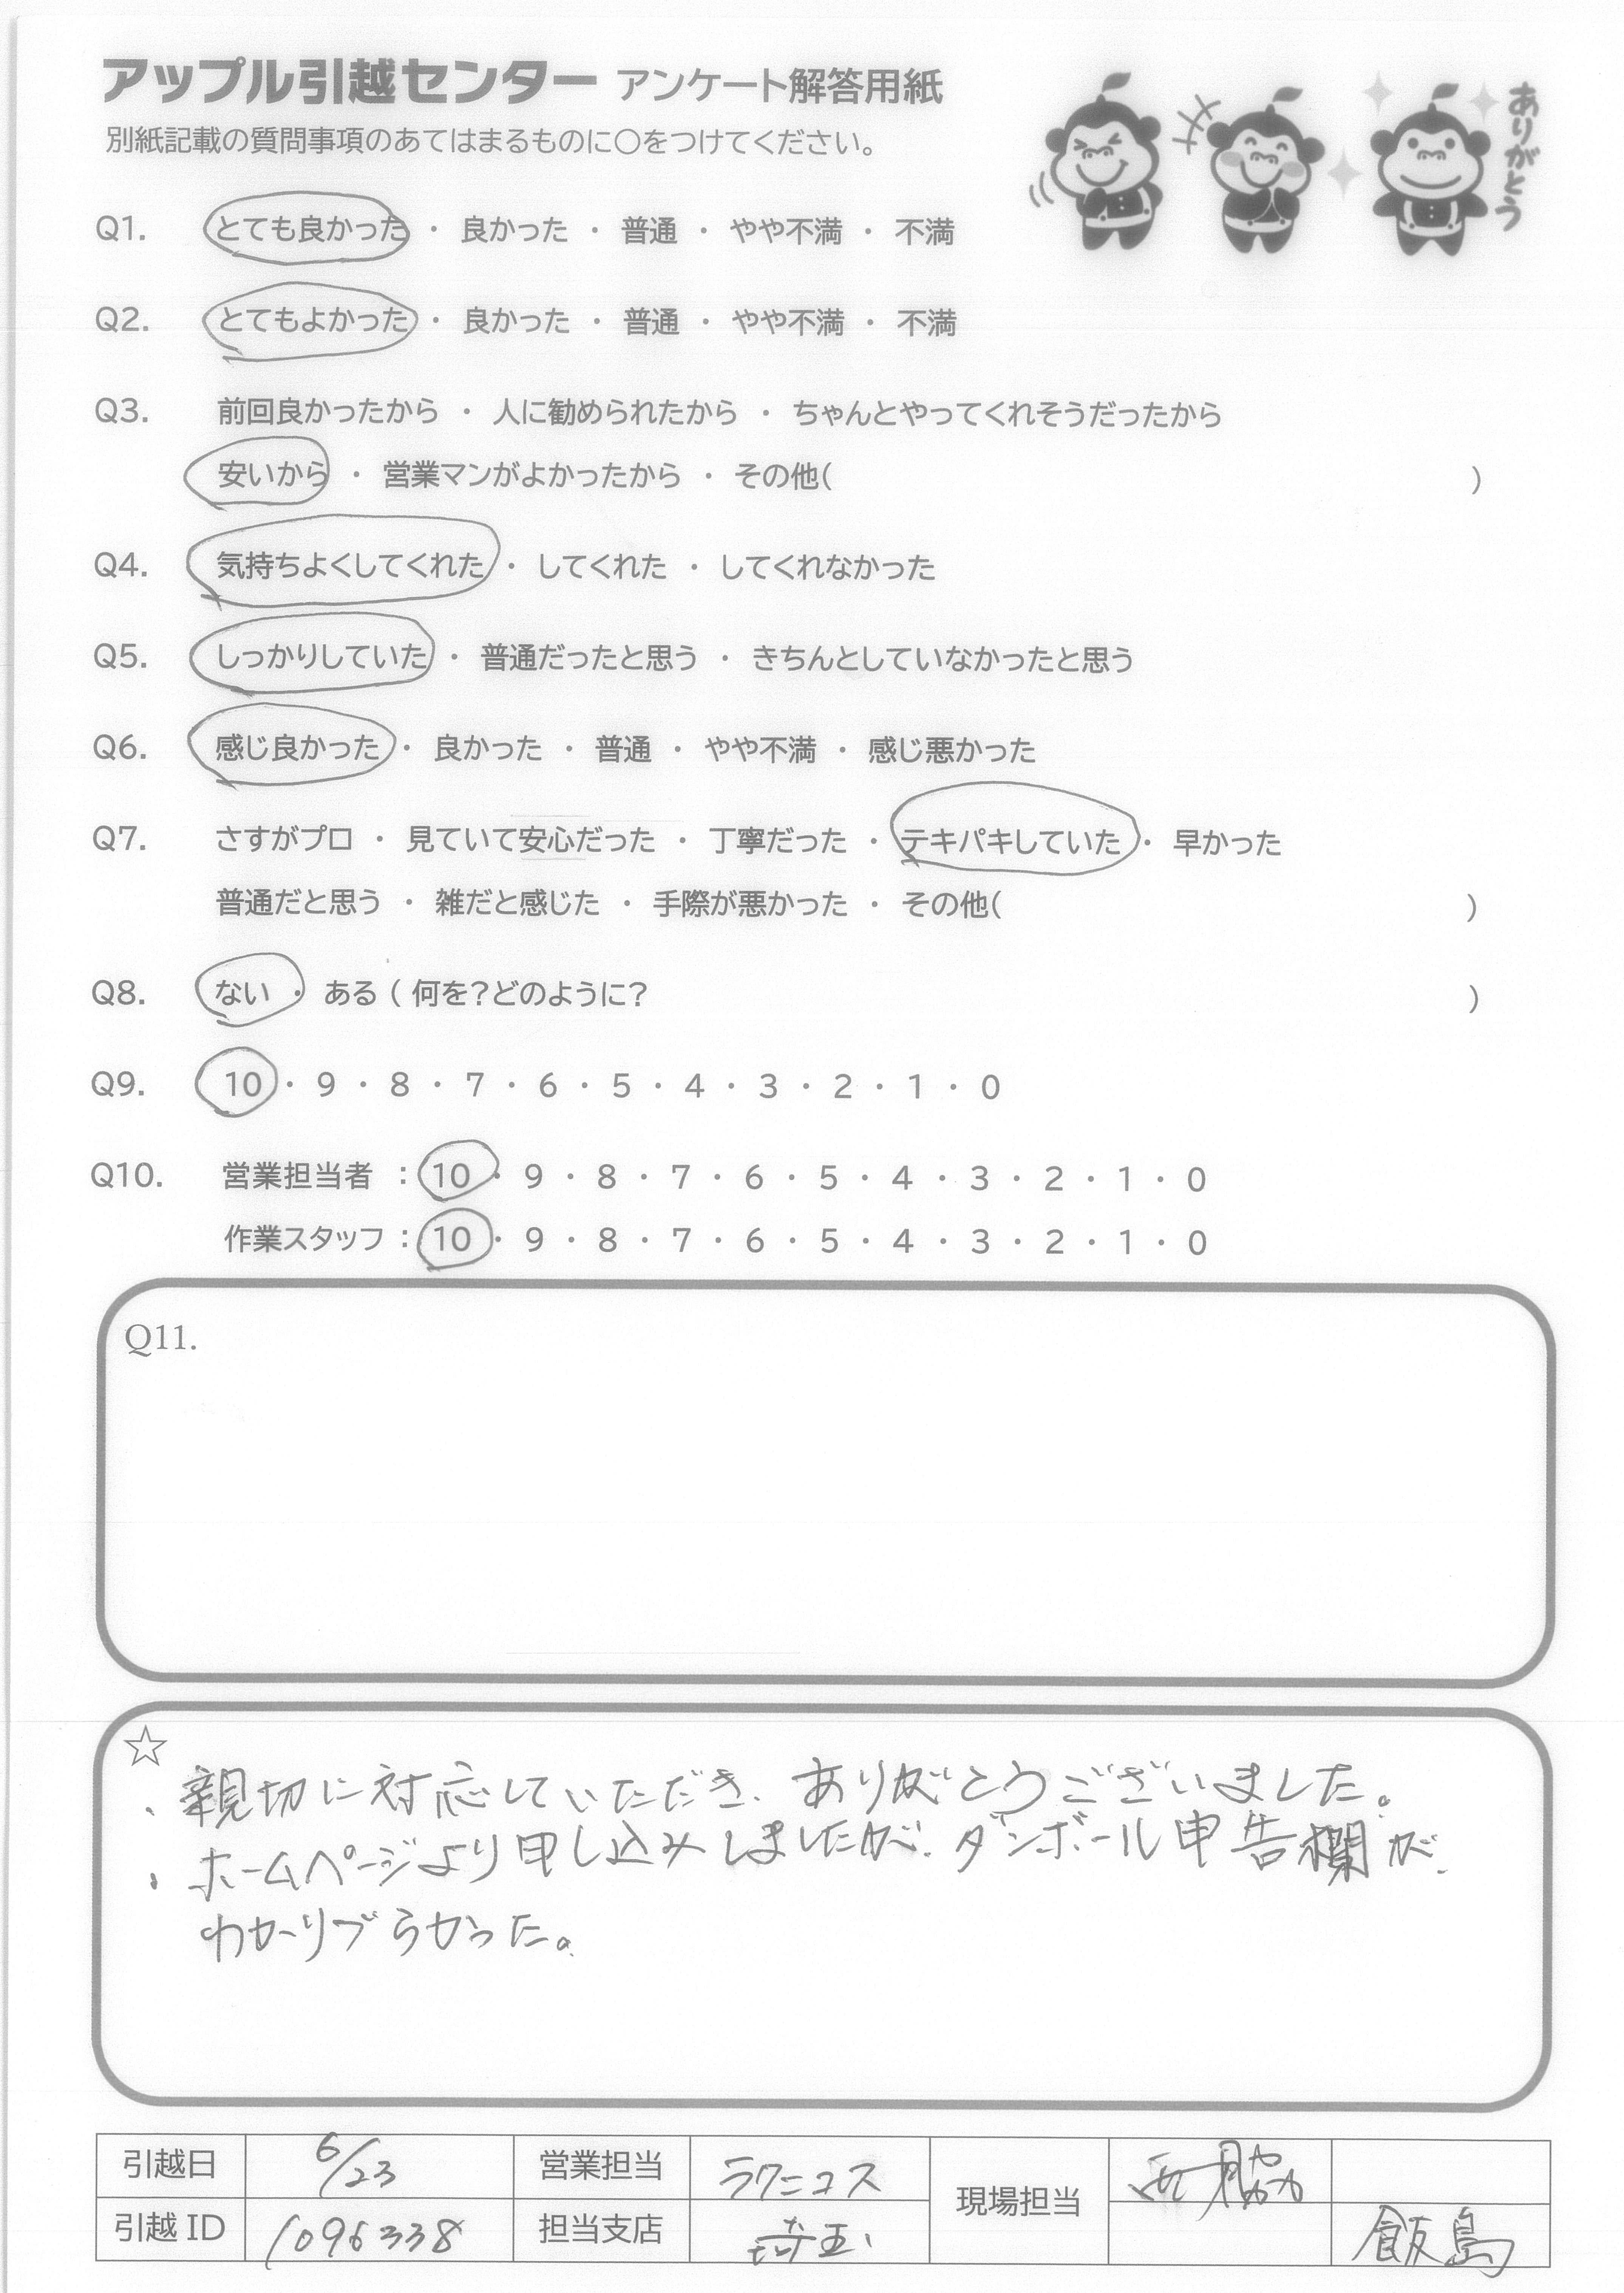 アップル引越センター アンケート解答用紙
ありがとう
別紙記載の質問事項のあてはまるものに○をつけてください。
Q1. とても良かった ・ 良かった ・ 普通 ・ やや不満 ・ 不満
Q2. とてもよかった ・ 良かった ・ 普通 ・ やや不満 ・ 不満
Q3. 前回良かったから ・ 人に勧められたから ・ ちゃんとやってくれそうだったから
安いから ・ 営業マンがよかったから ・ その他( )
Q4. 気持ちよくしてくれた ・ してくれた ・ してくれなかった
Q5. しっかりしていた ・ 普通だったと思う ・ きちんとしていなかったと思う
Q6. 感じ良かった ・ 良かった ・ 普通 ・ やや不満 ・ 感じ悪かった
Q7. さすがプロ ・ 見ていて安心だった ・ 丁寧だった ・ テキパキしていた ・ 早かった
普通だと思う ・ 雑だと感じた ・ 手際が悪かった ・ その他( )
Q8. ない ・ ある ( 何を?どのように? )
Q9. 10 ・ 9 ・ 8 ・ 7 ・ 6 ・ 5 ・ 4 ・ 3 ・ 2 ・ 1 ・ 0
Q10. 営業担当者 : 10 ・ 9 ・ 8 ・ 7 ・ 6 ・ 5 ・ 4 ・ 3 ・ 2 ・ 1 ・ 0
作業スタッフ : 10 ・ 9 ・ 8 ・ 7 ・ 6 ・ 5 ・ 4 ・ 3 ・ 2 ・ 1 ・ 0
Q11.
☆
・親切に対応していただき、ありがとうございました。
・ホームページより申し込みしましたが、ダンボール申告欄が、
わかりづらかった。
引越日 6/23 営業担当 ラクニコス 現場担当 西脇
引越 ID 1096338 担当支店 埼玉 飯島